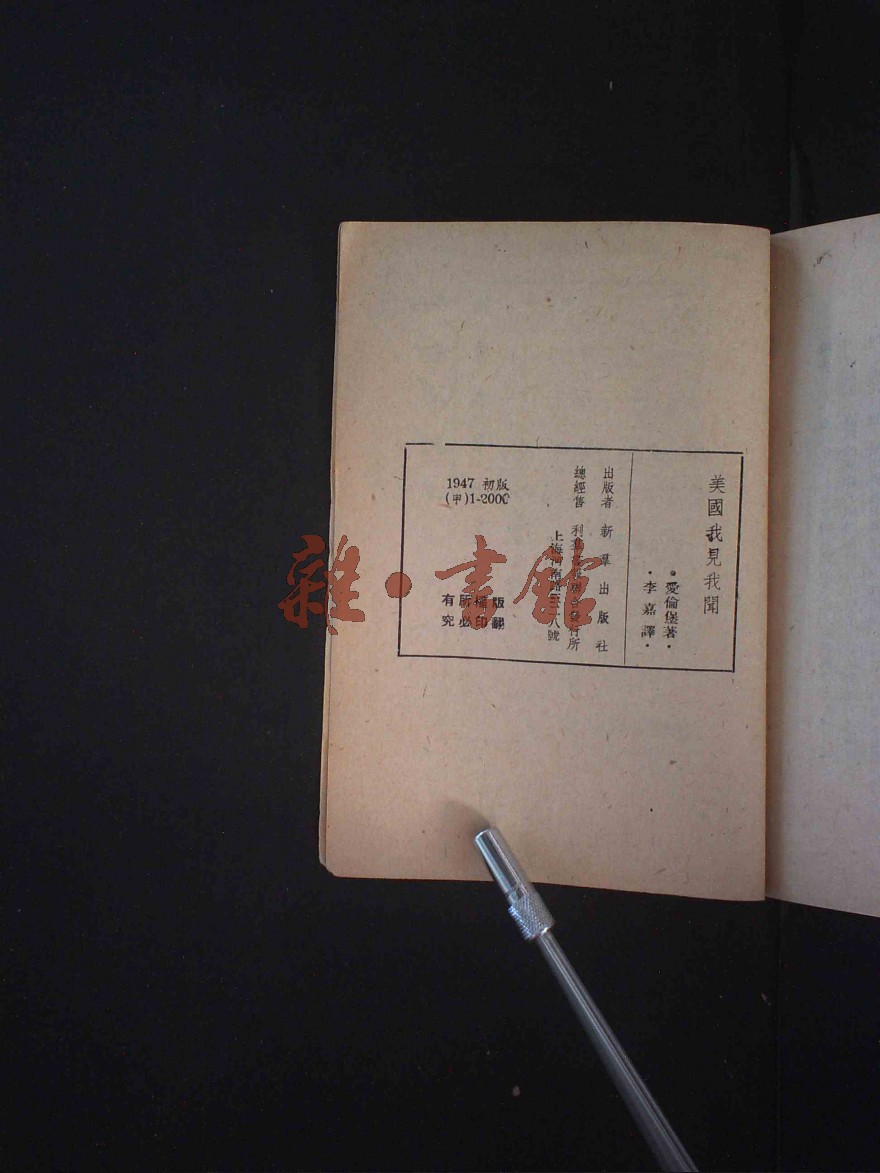 美國我見我聞
•愛倫堡著•
•李嘉譯•
出版者 新羣出版社
總經售 利羣書報聯合發行所
上海河南路三二八號
1947 初版
(甲)1-2000
版權所有
翻印必究
雜·書館